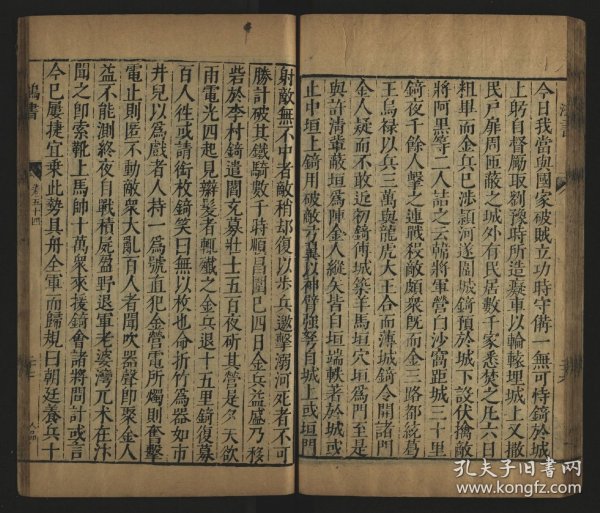 今日我當與國家破賊立功時守備一無可恃錡於城
上躬自督厲取劉豫時所造癡車以輪轅埋城上又撤
民戶扉周匝蔽之城外有民居數千家悉焚之凡六日
粗畢而金兵已涉潁河遂圍城錡預於城下設伏擒敵
將阿黑等二人詰之云韓將軍營白沙窩距城三十里
錡夜千餘人擊之連戰殺敵頗衆旣而金三路都統葛
王烏祿以兵三萬與龍虎大王合而薄城錡令開諸門
金人疑而不敢近初錡傅城築羊馬垣穴垣爲門至是
與許清輩蔽垣爲陣金人縱矢皆自垣端軼著於城或
止中垣上錡用破敵弓翼以神臂強弩自城上或垣門
射敵無不中者敵稍却復以步兵邀擊溺河死者不可
勝計破其鐵騎數千時順昌圍已四日金兵益盛乃移
砦於李村錡遣閻充募壯士五百夜斫其營是夕天欲
雨電光四起見辮髮者輒殲之金兵退十五里錡復募
百人徃或請銜枚錡笑曰無以枚也命折竹爲器如市
井兒以爲戲者人持一爲號直犯金營電所燭則奮擊
電止則匿不動敵衆大亂百人者聞吹器聲卽聚金人
益不能測終夜自戰積屍盈野退軍老婆灣兀术在汴
聞之卽索靴上馬帥十萬衆來援錡會諸將問計或言
今已屢捷宜乗此勢具舟全軍而歸規曰朝廷養兵十
鴻書
卷五十四
孔夫子旧书网
www.kongfz.com